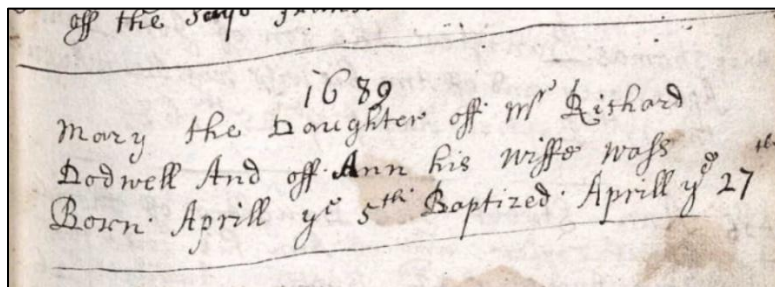 off the Says
1689
Mary the Daughter off Mr Richard
Dodwell And off Ann his wiffe wass
Born Aprill ye 5th Baptized Aprill ye 27th